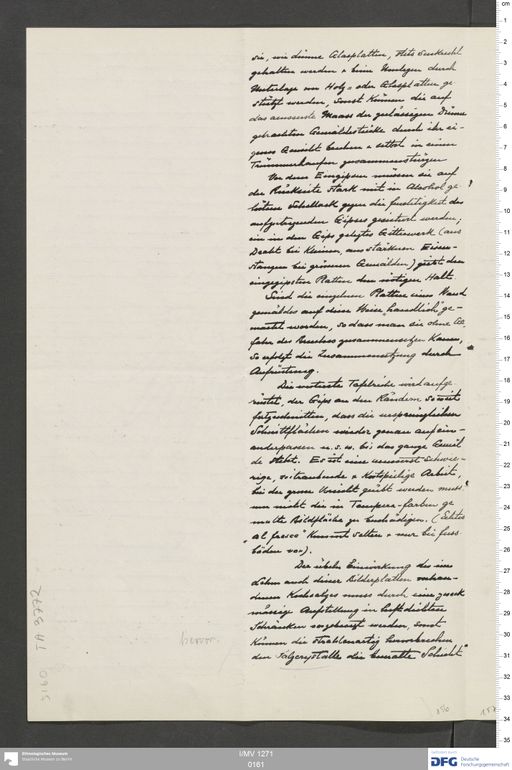 sie, wie dünne Glasplatten, stets senkrecht
gehalten werden & beim Umlegen durch
Unterlage von Holz- oder Glasplatten ge
stützt werden, sonst können die auf
das aeusserste Maass der zulässigen Dünne
gebrachten Gemäldestücke durch ihr ei-
genes Gewicht brechen & selbst in einen
Trümmerhaufen zusammenstürzen
Vor dem Eingipsen müssen sie auf
der Rückseite stark mit in Alcohol ge
löstem Schellack gegen die Feuchtigkeit des
aufzutragenden Gipses gesichert werden;
ein in den Gips gelegtes Gitterwerk (aus
Draht bei kleinen, aus stärkeren Eisen-
stangen bei grösseren Gemälden) giebt den
eingegipsten Platten den nötigen Halt.
Sind die einzelnen Platten eines Wand
gemäldes auf diese Weise "handlich" ge-
macht worden, so dass man sie ohne Ge
fahr des Bruches zusammensetzen kann,
so erfolgt die Zusammensetzung durch
Aufrüstung.
Die unterste Tafelreihe wird aufge-
rüstet, der Gips an den Rändern so weit
fortgeschnitten, dass die ursprünglichen
Schnittflächen wieder genau aufein-
anderpassen u.s.w. bis das ganze Gemäl
de steht. Es ist eine schwie-
rige, zeitraubende & kostspielige Arbeit,
bei der grosse Vorsicht geübt werden muss
um nicht die in Tempera-farben ge
malte Bildfläche zu beschädigen. (Echtes
"al fresco" kommt selten & nur bei Fuss
böden vor).
Der üblen Einwirkung des im
Lehm auch dieser Bilderplatten vorhan-
denen Kochsalzes muss durch eine zweck
mässige Aufstellung in luftdichten
Schränken vorgebeugt werden, sonst
können die strahlenartig hervorbrechen
den Salzcrystalle die bemalte Schicht
hervor.
TA 3772
3160
150
157
Ethnologisches Museum
Staatliche Museen zu Berlin
I/MV 1271
0161
DFG
Deutsche
Forschungsgemeinschaft